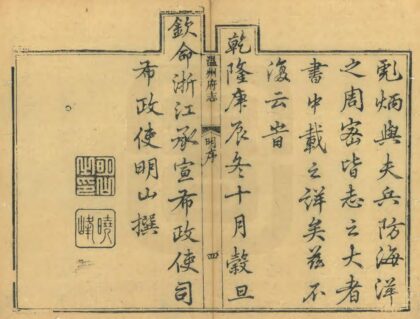 彪炳與夫兵防海洋
之周密皆志之大者
書中載之詳矣茲不
復云昔
乾隆庚辰冬十月穀旦
溫州府志
明序
四
欽命浙江承宣布政使司
布政使明山撰
明山之印
曉峰